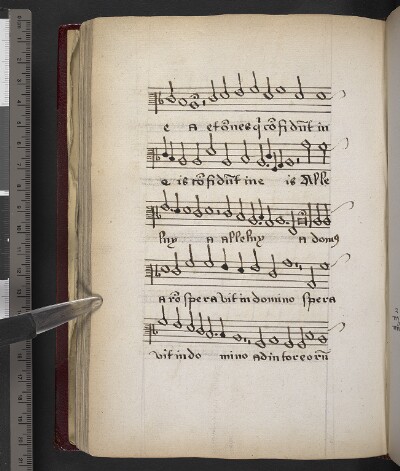 e a et oñes q̃ cõfidũt in
e is cõfidũt in e is Alle
luy a alleluy a domꝰ
aarõ speravit in domino spera
vit in do mino adiutor eorũ